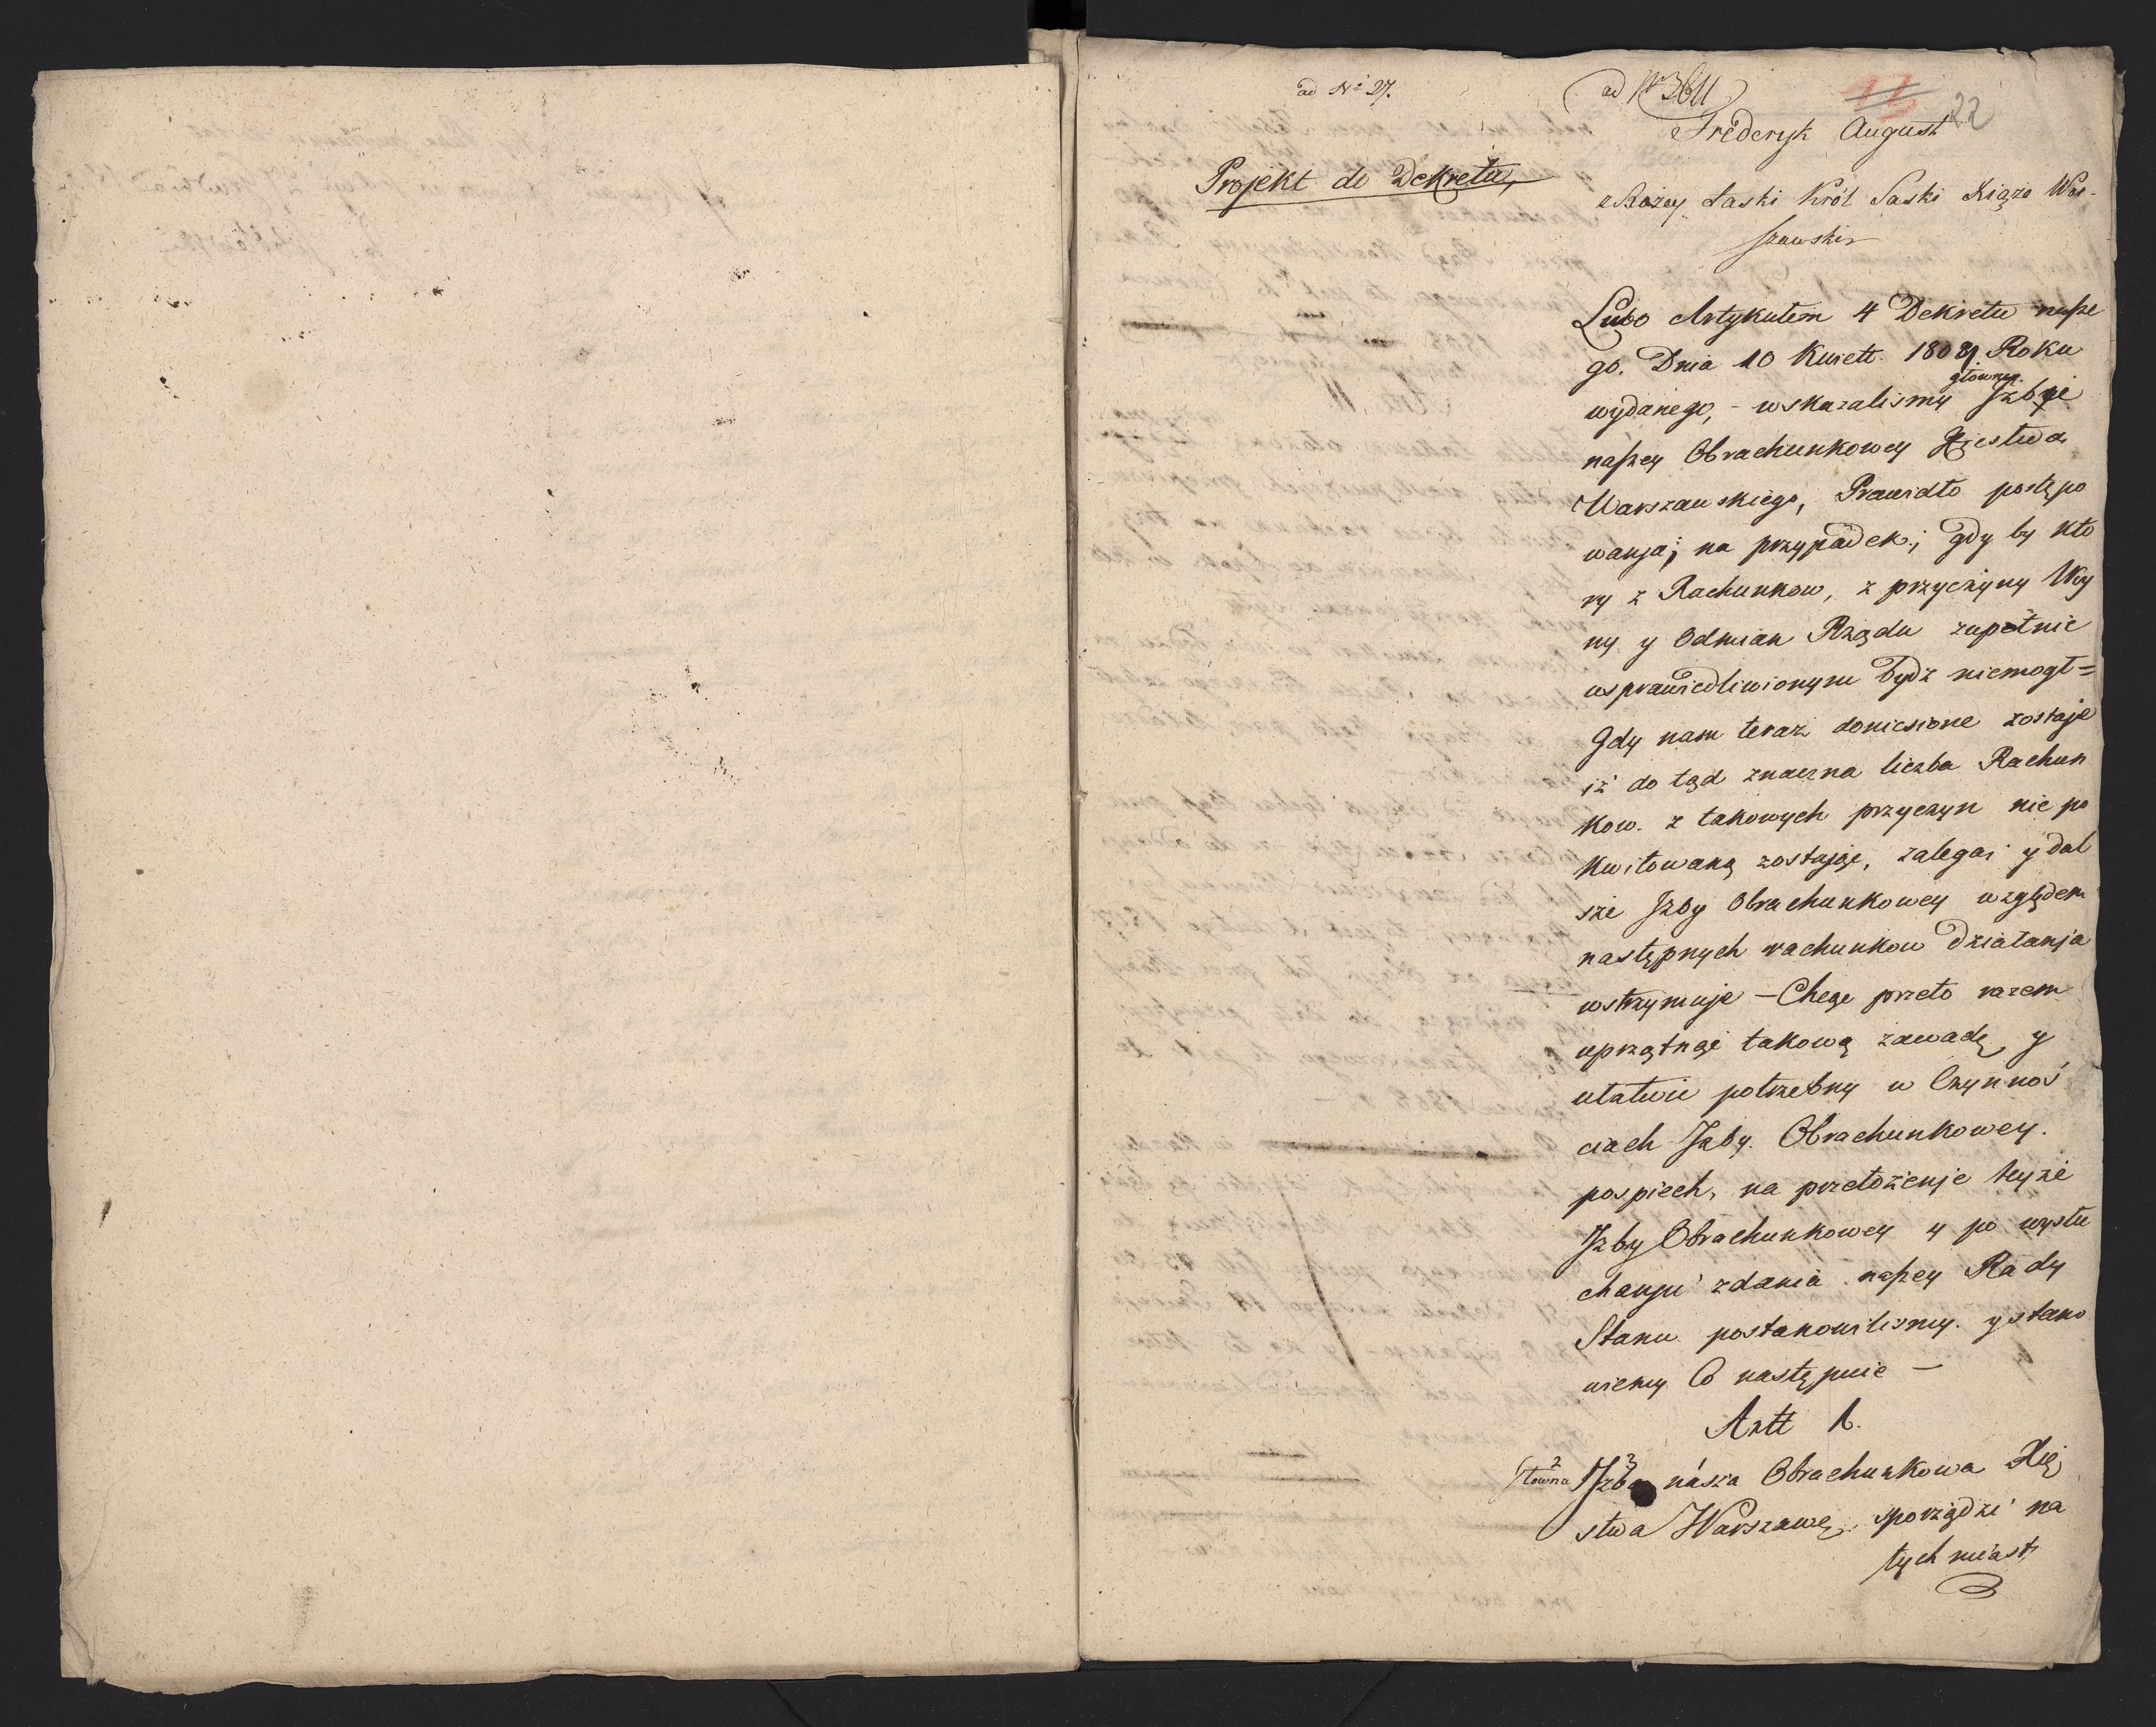 ad Nº 27.
ad Nº 3611
22
Projekt do Dekretu,
Frederyk August
z Bożey Łaski Król Saski Xiąże War-
szawski
Lubo Artykułem 4 Dekretu nasze
go. Dnia 10 Kwiet. 1809. Roku
wydanego, - wskazalismy główney Jzbie
naszey Obrachunkowey Xięstwa
Warszawskiego, Prawidło postępo
wanja; na przypadek; gdy by kto
ry z Rachunkow, z przyczyny Woy
ny y Odmian Rządu zupełnie
usprawiedliwionym bydź niemogł =
Gdy nam teraz doniesione zostaje
iż do tąd znaczna liczba Rachun
kow. z takowych przyczyn nie po
kwitowaną zostając, zalega i y dal
sze Jzby Obrachunkowey względem
następnych rachunkow działanja
wstrzymuje - Chcąc przeto razem
uprzątnąć takową zawadę, y
ułatwić potrzebny w Czynnoś
ciach Jzby. Obrachunkowey.
pospiech, na przełożenje teyże
Jzby Obrachunkowey y po wysłu
chanju zdania naszey Rady
Stanu postanowilismy. y stano
wiemy Co następuie -
Artt 1.
2 3
Główna Jzba nasza Obrachunkowa Xię
stwa Warszaws. sporządzi na
tych miast